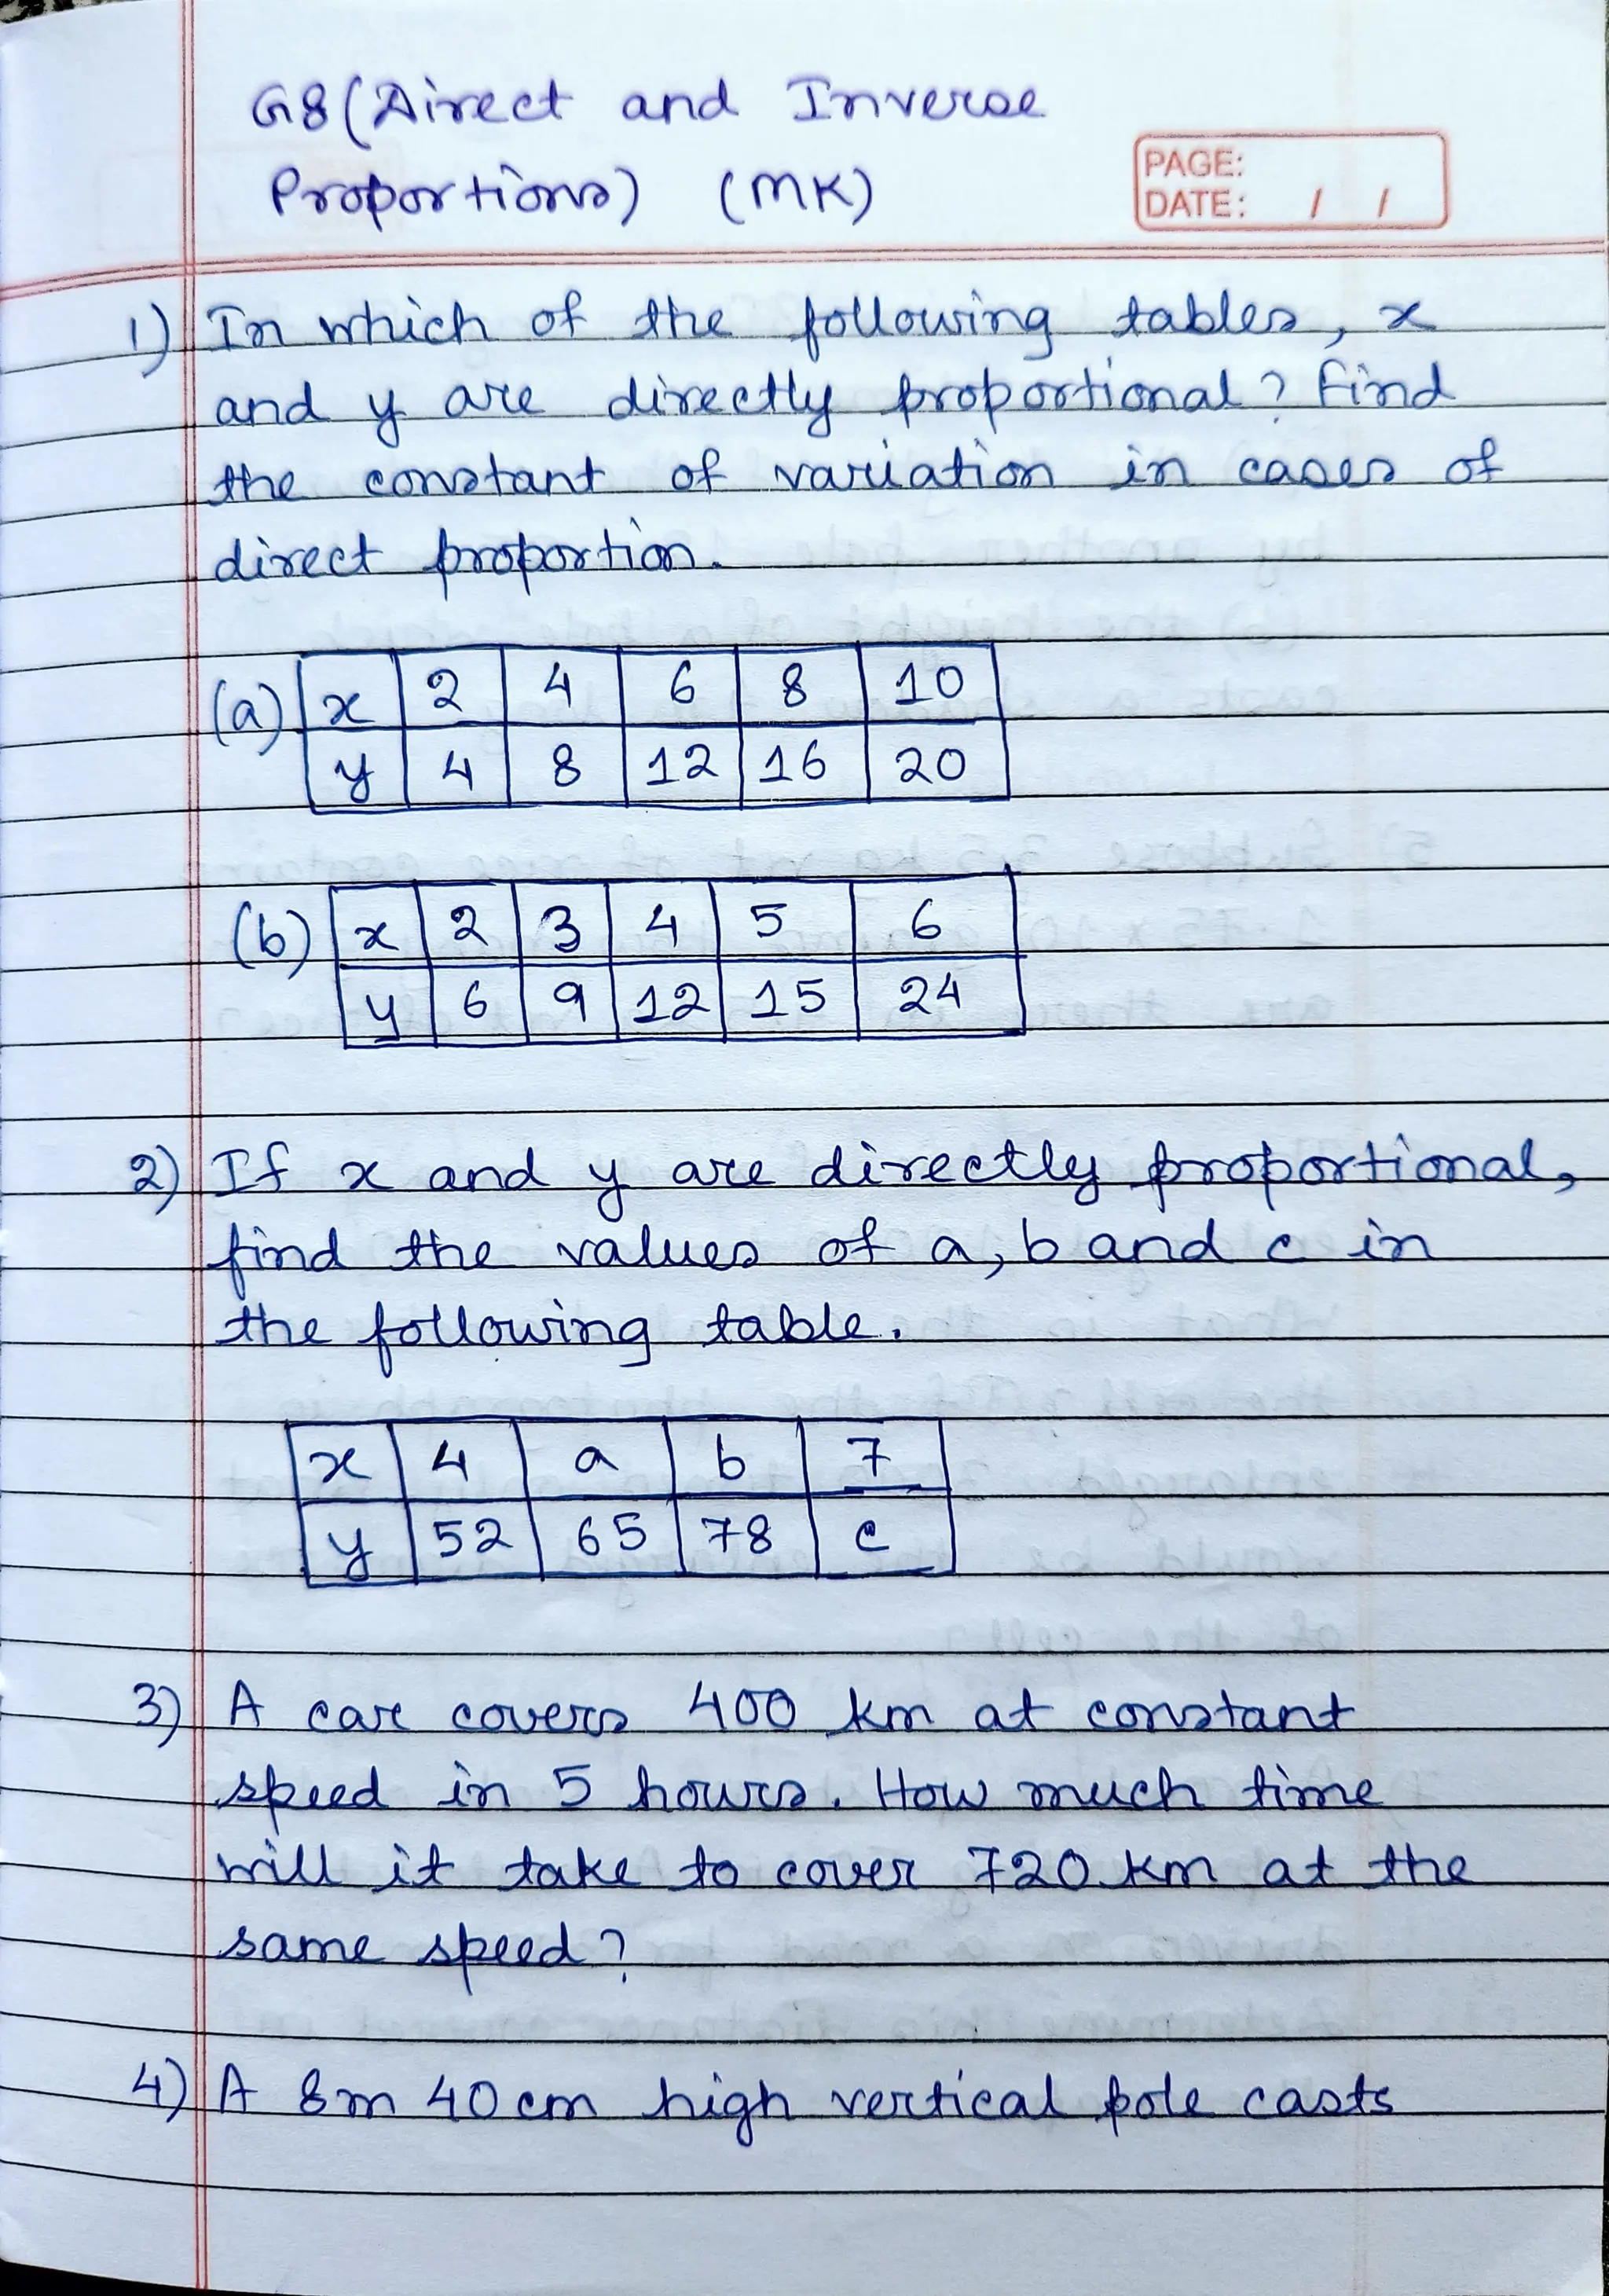 G8 (Direct and Inverse
Proportions) (MK)
PAGE:
DATE: / /
1) In which of the following tables, x
and y are directly proportional? Find
the constant of variation in cases of
direct proportion.
(a) x 2 4 6 8 10
y 4 8 12 16 20
(b) x 2 3 4 5 6
y 6 9 12 15 24
2) If x and y are directly proportional,
find the values of a, b and c in
the following table.
x 4 a b 7
y 52 65 78 c
3) A car covers 400 km at constant
speed in 5 hours. How much time
will it take to cover 720 km at the
same speed?
4) A 8m 40 cm high vertical pole casts